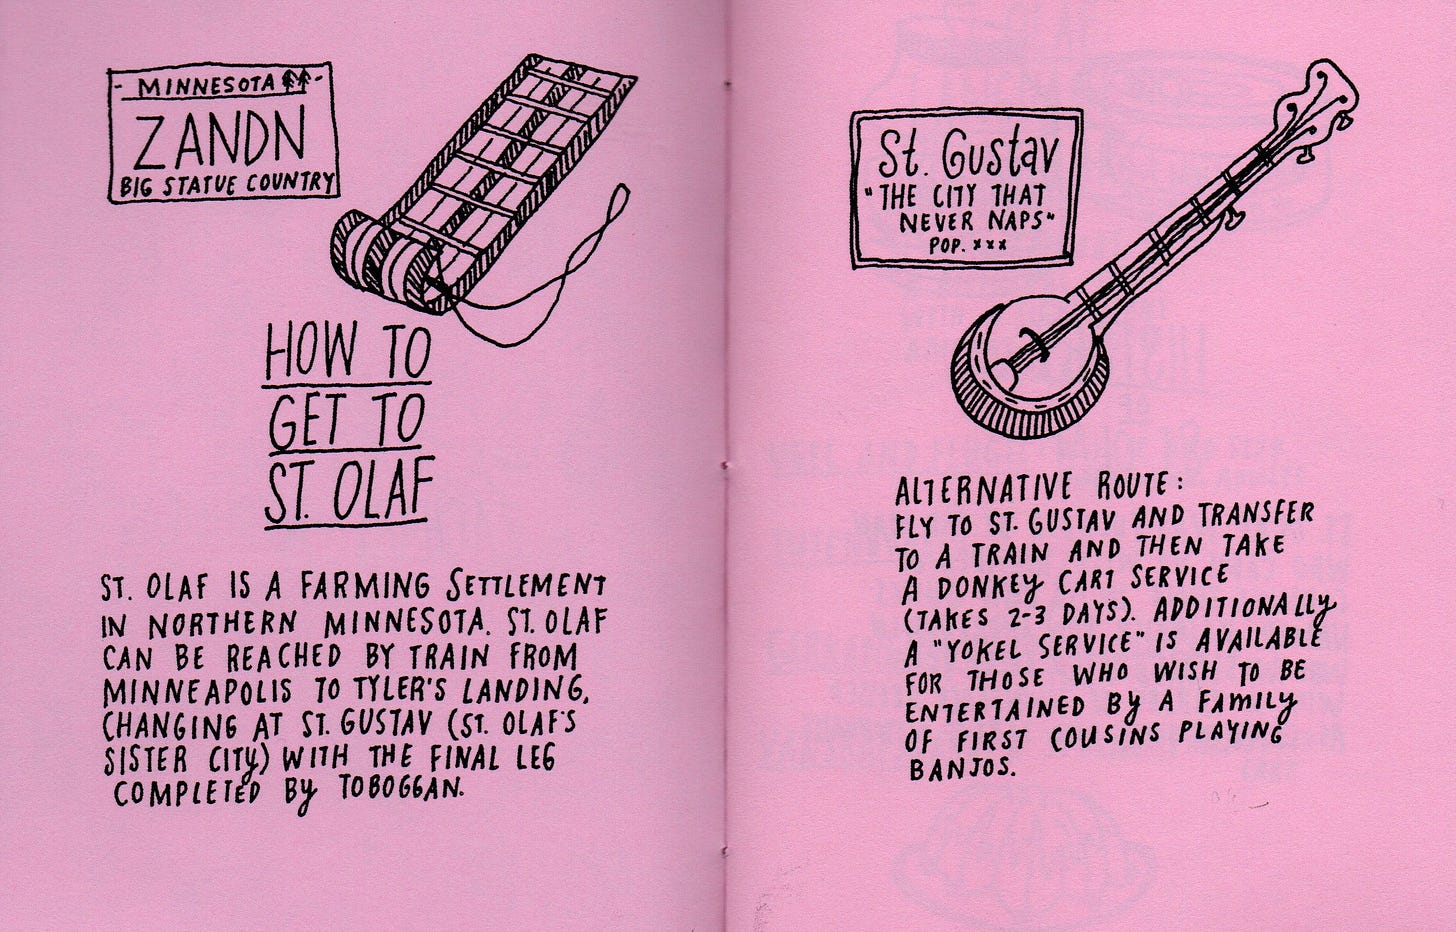 - MINNESOTA -
ZANDN
BIG STATUE COUNTRY
HOW TO
GET TO
ST. OLAF
ST. OLAF IS A FARMING SETTLEMENT
IN NORTHERN MINNESOTA. ST. OLAF
CAN BE REACHED BY TRAIN FROM
MINNEAPOLIS TO TYLER'S LANDING,
CHANGING AT ST. GUSTAV (ST. OLAF'S
SISTER CITY) WITH THE FINAL LEG
COMPLETED BY TOBOGGAN.
St. Gustav
"THE CITY THAT
NEVER NAPS"
POP. xxx
ALTERNATIVE ROUTE:
FLY TO ST. GUSTAV AND TRANSFER
TO A TRAIN AND THEN TAKE
A DONKEY CART SERVICE
(TAKES 2-3 DAYS). ADDITIONALLY
A "YOKEL SERVICE" IS AVAILABLE
FOR THOSE WHO WISH TO BE
ENTERTAINED BY A FAMILY
OF FIRST COUSINS PLAYING
BANJOS.